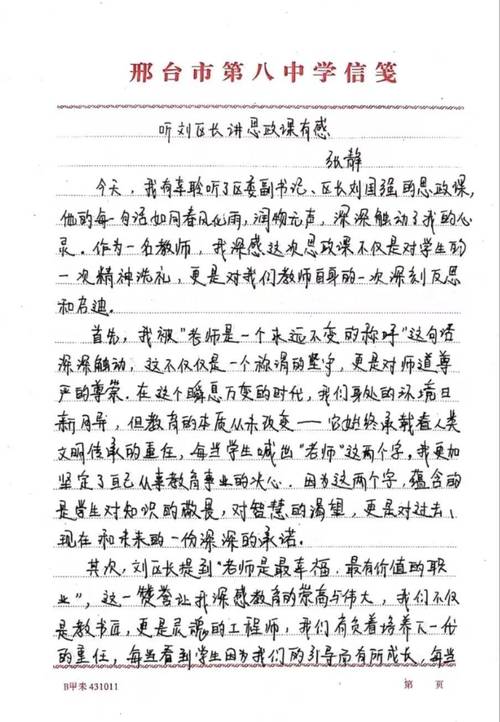 邢台市第八中学信笺
听刘区长讲思政课有感
张静
今天，我有幸聆听了区委副书记、区长刘国强的思政课，
他的每一句话如同春风化雨，润物无声，深深触动了我的心
灵。作为一名教师，我深感这次思政课不仅是对学生的
一次精神洗礼，更是对我们教师自身的一次深刻反思
和启迪．
首先，我被“老师是一个永远不变的称呼”这句话
深深触动，这不仅仅是一个称谓的坚守，更是对师道尊
严的尊崇．在这个瞬息万变的时代，我们身处的环境日
新月异，但教育的本质从未改变——它始终承载着人类
文明传承的重任，每当学生喊出“老师”这两个字，我更加
坚定了自己从事教育事业的决心．因为这两个字，蕴含的
是学生对知识的敬畏，对智慧的渴望，更是对过去、
现在和未来的一份深深的承诺．
其次，刘区长提到“老师是最幸福、最有价值的职
业”，这一赞誉让我深感教育的崇高与伟大，我们不仅
是教书匠，更是灵魂的工程师，我们肩负着培养下一代
的重任，每当看到学生因为我们的引导而有所成长，每当
B甲未431011
第 页